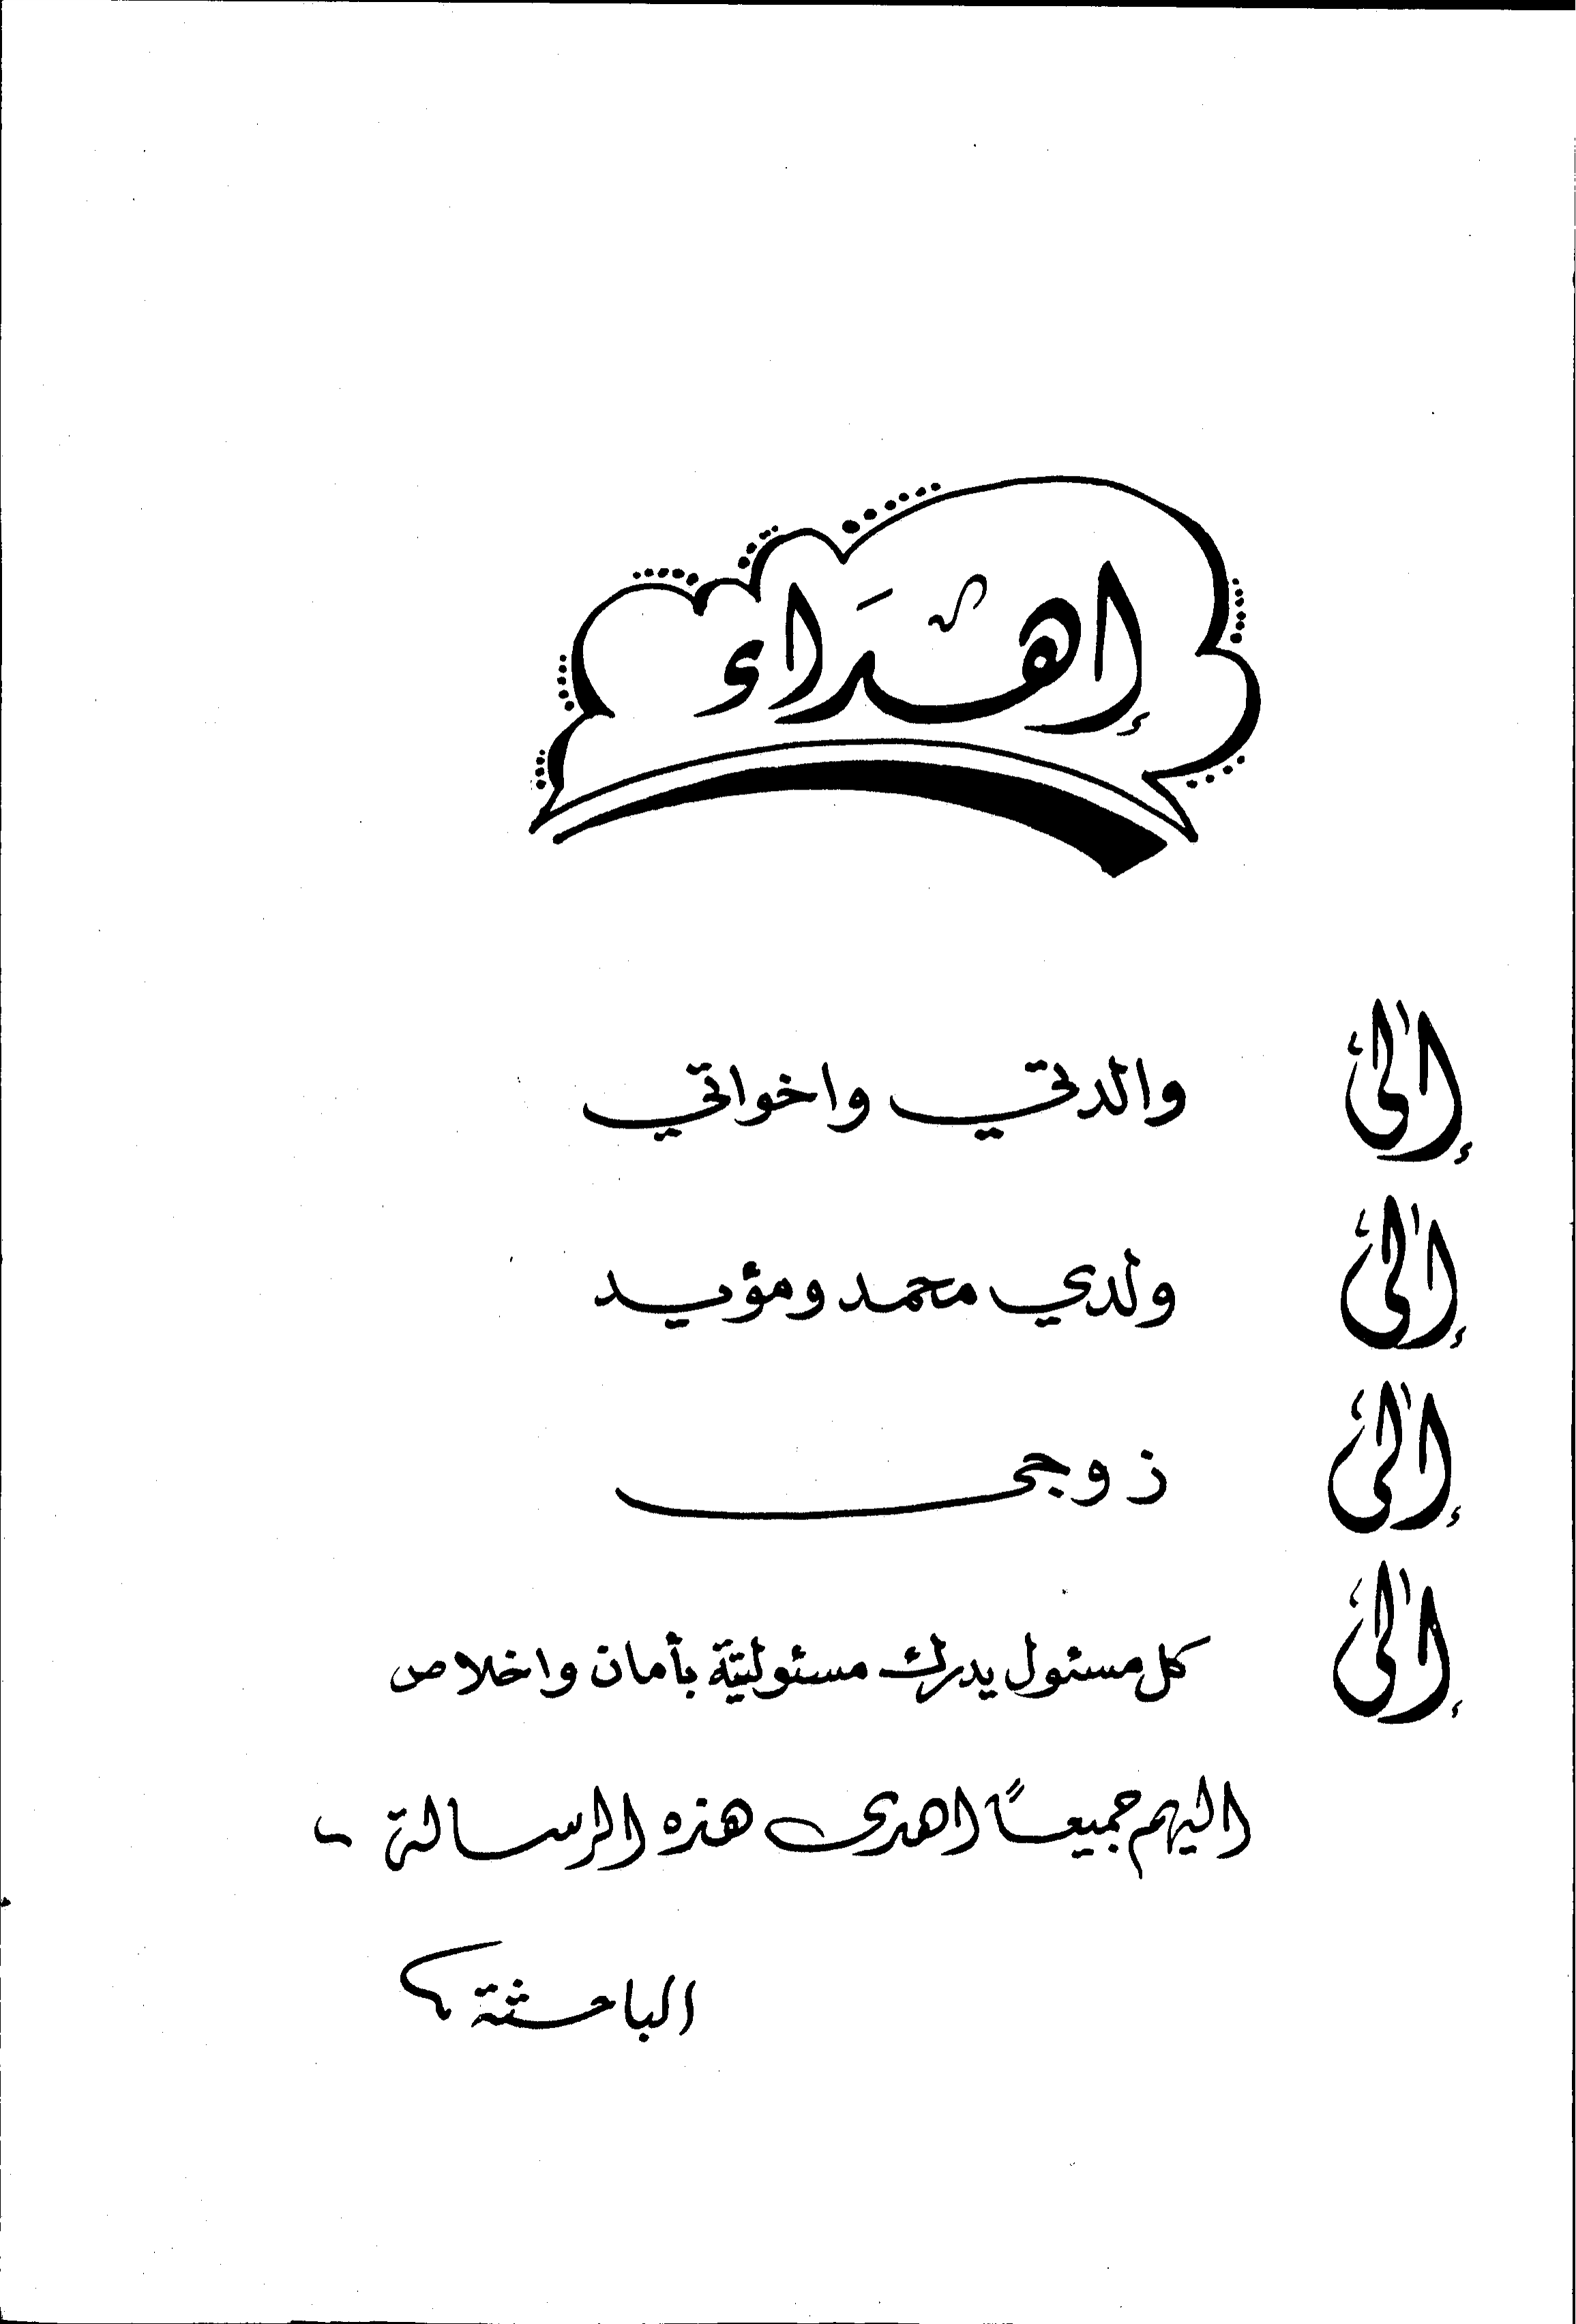 إهداء
إلى والدتي واخواتي
إلى ولدي محمد ومؤيد
إلى زوجى
إلى كل مسئول يدرك مسئوليتة بأمان واخلاص
اليهم جميعاً اهدى هذه الرسالة
الباحثة